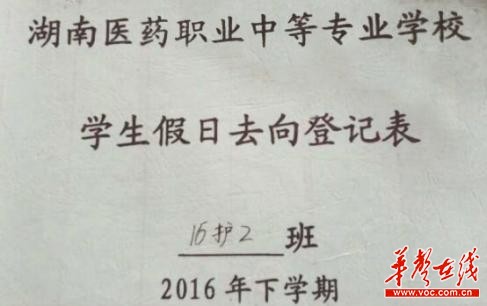 湖南医药职业中等专业学校
学生假日去向登记表
16护2 班
2016年下学期
华声在线
www.voc.com.cn